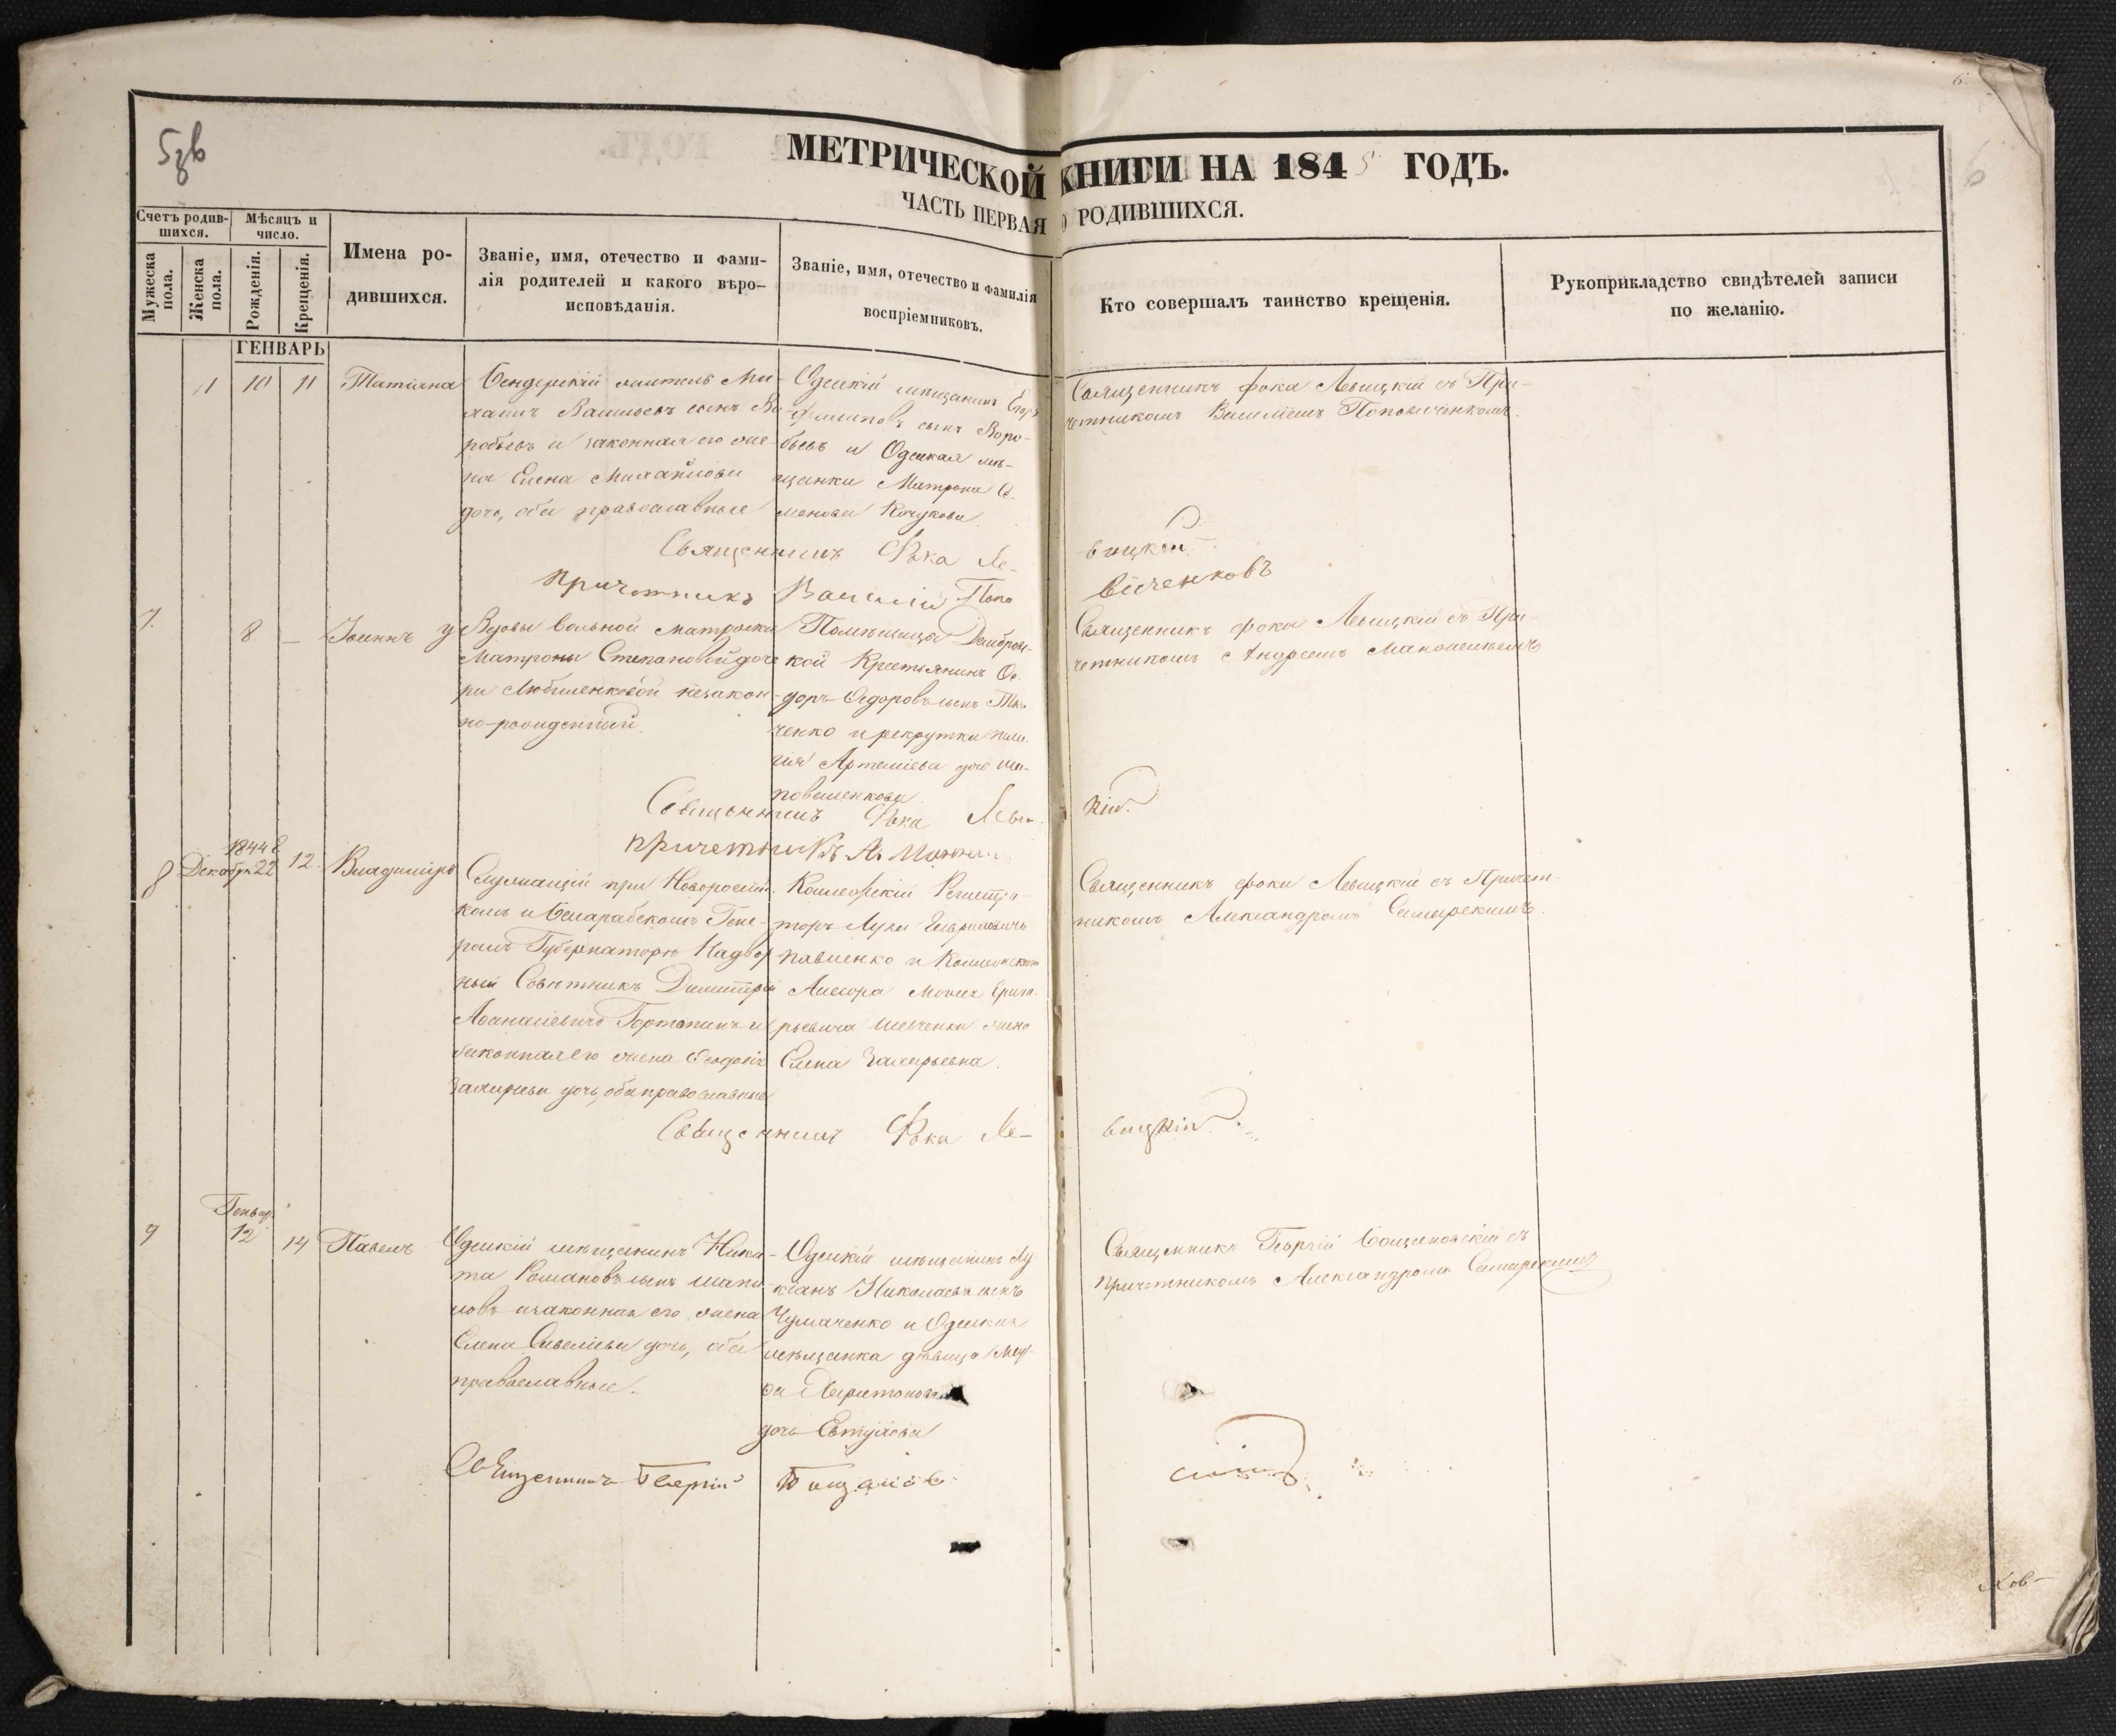 6.
5зв
6
МЕТРИЧЕСКОЙ КНИГИ НА 1845 ГОДЪ.
ЧАСТЬ ПЕРВАЯ О РОДИВШИХСЯ.
Счетъ родив-
шихся.
Мѣсяцъ и
число.
Мужеска
пола.
Женска
пола.
Рожденія.
Крещенія.
Имена ро-
дившихся.
Званіе, имя, отечество и фами-
лія родителей и какого вѣро-
исповѣданія.
Званіе, имя, отечество и фамилія
воспріемниковъ.
Кто совершалъ таинство крещенія.
Рукоприкладство свидѣтелей записи
по желанію.
ГЕНВАРЬ
11 10 11 Татіана
Бендерскій житель Ми-
хаилъ Васильевъ сынъ Во-
робьевъ и законная его же-
на Елена Михайлова
дочь, оба православные
Одескій мѣщанинъ Егоръ
Филиповъ сынъ Воро-
бьевъ и Одеская мѣ-
щанка Матрона Се-
менова Кочукова
Священникъ Фока Левицкій съ При-
четникомъ Василіемъ Поповиченкомъ.
Священникъ Фока Ле-
вицкій
Причетникъ Василій Попо
виченковъ
7. 8 — Іоаннъ
У Вдовы вольной матроски
Матроны Степановой доче
ри Любименковой незакон-
но-рожденный.
Помѣщицы Домбровс-
кой Крестьянинъ Ѳе-
доръ Ѳедоровъ сынъ Тка-
ченко и рекрутка Пела-
гія Артеміева дочь Ша-
поваленкова.
Священникъ Фока Левицкій съ При-
четникомъ Андреемъ
Священникъ Фока Леви-
кій.
Причетникъ А.
1844 г.
8 Декабря 22 12. Владиміръ
Служащій при Новороссій-
комъ и Бессарабскомъ Гене-
ралъ Губернаторѣ Надвор
ный Совѣтникъ Димитрій
Аѳанасіевичъ и
законная его жена Ѳеодосія
Захарьева дочь, оба православные
Колежскій Регистра-
торъ Лука Гавриловичъ
Павленко и Колежскаго
Асесора Моисея Григо-
рьевича Шевченка жена
Елена Захарьевна.
Священникъ Фока Левицкій съ Причет-
никомъ Александромъ Самарскимъ.
Священникъ Фока Ле-
вицкій.
Генвар.
9 12 14 Павелъ
Одескій мѣщанинъ Ники-
та Романовъ сынъ Шапо-
ловъ и законная его жена
Елена Савеліева дочь, оба
православные.
Одескій мѣщанинъ Лу-
кіанъ Николаевъ сынъ
Чумаченко и Одеская
мѣщанка дѣвица Мар-
ѳа Харитонова
дочь Евтухова
Священникъ Георгій съ
причетникомъ Александромъ Самарскимъ
Священникъ Георгій